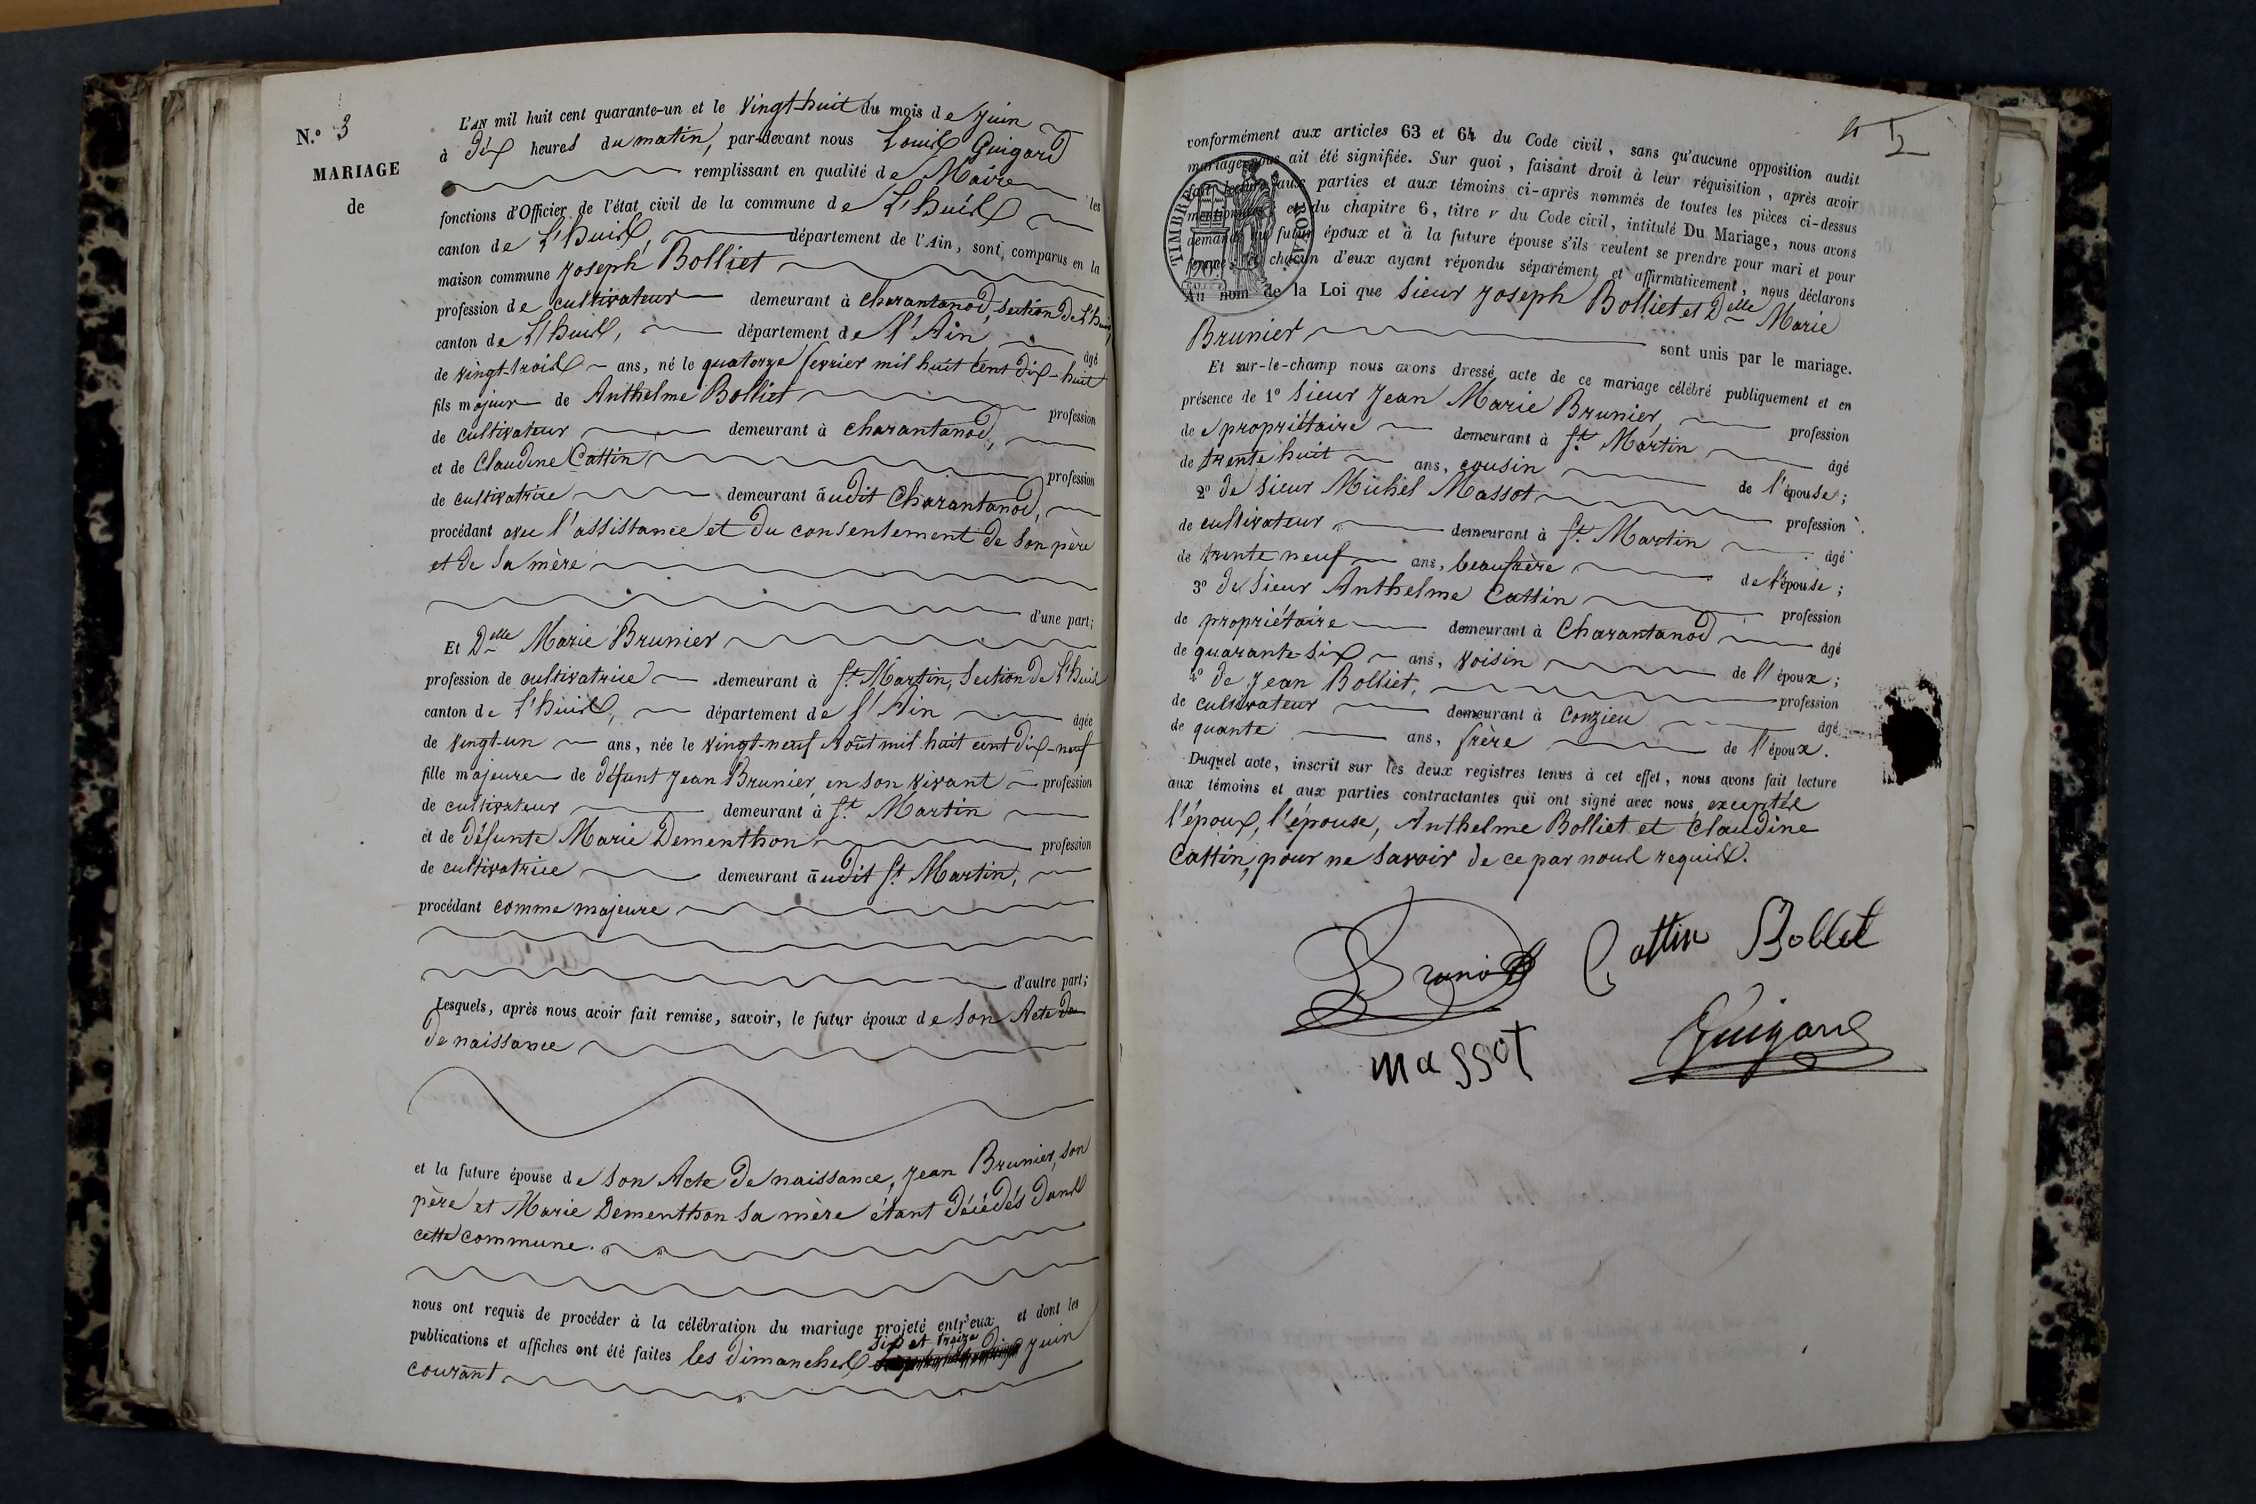 N.º 3
MARIAGE
de
L'AN mil huit cent quarante-un et le Vingt-huit du mois de Juin
à dix heures du matin, par-devant nous Louis Guigard
remplissant en qualité de Maire les
fonctions d'Officier de l'état civil de la commune de L'huis
canton de L'huis, département de l'Ain, sont comparus en la
maison commune Joseph Bolliet
profession de cultivateur demeurant à Charantanod, Section de L'huis,
canton de L'huis, département de l'Ain âgé
de vingt-trois ans, né le quatorze février mil huit cent dix-huit
fils majeur de Anthelme Bolliet profession
de cultivateur demeurant à Charantanod,
et de Claudine Cattin profession
de cultivatrice demeurant audit Charantanod,
procédant avec l'assistance et du consentement de son père
et de sa mère
d'une part;
Et Delle Marie Brunier
profession de cultivatrice demeurant à St Martin, Section de L'huis
canton de L'huis, département de l'Ain âgée
de vingt-un ans, née le vingt-neuf Août mil huit cent dix-neuf
fille majeure de défunt Jean Brunier, en son vivant profession
de cultivateur demeurant à St Martin
et de défunte Marie Dementhon profession
de cultivatrice demeurant audit St Martin,
procédant comme majeure
d'autre part;
Lesquels, après nous avoir fait remise, savoir, le futur époux de son Acte de
de naissance
et la future épouse de son Acte de naissance, Jean Brunier, son
père et Marie Dementhon sa mère étant décédés dans
cette commune.
nous ont requis de procéder à la célébration du mariage projeté entr'eux et dont les
six et treize
publications et affiches ont été faites les dimanches Juin
courant
conformément aux articles 63 et 64 du Code civil, sans qu'aucune opposition audit
mariage nous ait été signifiée. Sur quoi, faisant droit à leur réquisition, après avoir
fait lecture aux parties et aux témoins ci-après nommés de toutes les pièces ci-dessus
mentionnées et du chapitre 6, titre v du Code civil, intitulé Du Mariage, nous avons
demandé au futur époux et à la future épouse s'ils veulent se prendre pour mari et pour
femme; et chacun d'eux ayant répondu séparément et affirmativement, nous déclarons
TIMBRE ROYAL
Au nom de la Loi que Sieur Joseph Bolliet et Delle Marie
Brunier sont unis par le mariage.
Et sur-le-champ nous avons dressé acte de ce mariage célébré publiquement et en
présence de 1º Sieur Jean Marie Brunier, profession
de propriétaire demeurant à St Martin âgé
de trente huit ans, cousin de l'épouse;
2º de Sieur Michel Massot profession
de cultivateur demeurant à St Martin âgé
de trente neuf ans, beaufrère de l'épouse;
3º de Sieur Anthelme Cattin profession
de propriétaire demeurant à Charantanod âgé
de quarante-six ans, voisin de l'époux;
4º de Jean Bolliet, profession
de cultivateur demeurant à Conzieu âgé
de quante ans, frère de l'époux.
Duquel acte, inscrit sur les deux registres tenus à cet effet, nous avons fait lecture
aux témoins et aux parties contractantes qui ont signé avec nous exceptés
l'époux, l'épouse, Anthelme Bolliet et Claudine
Cattin, pour ne savoir de ce par nous requis.
Brunier Cattin Bolliet
Massot Guigard